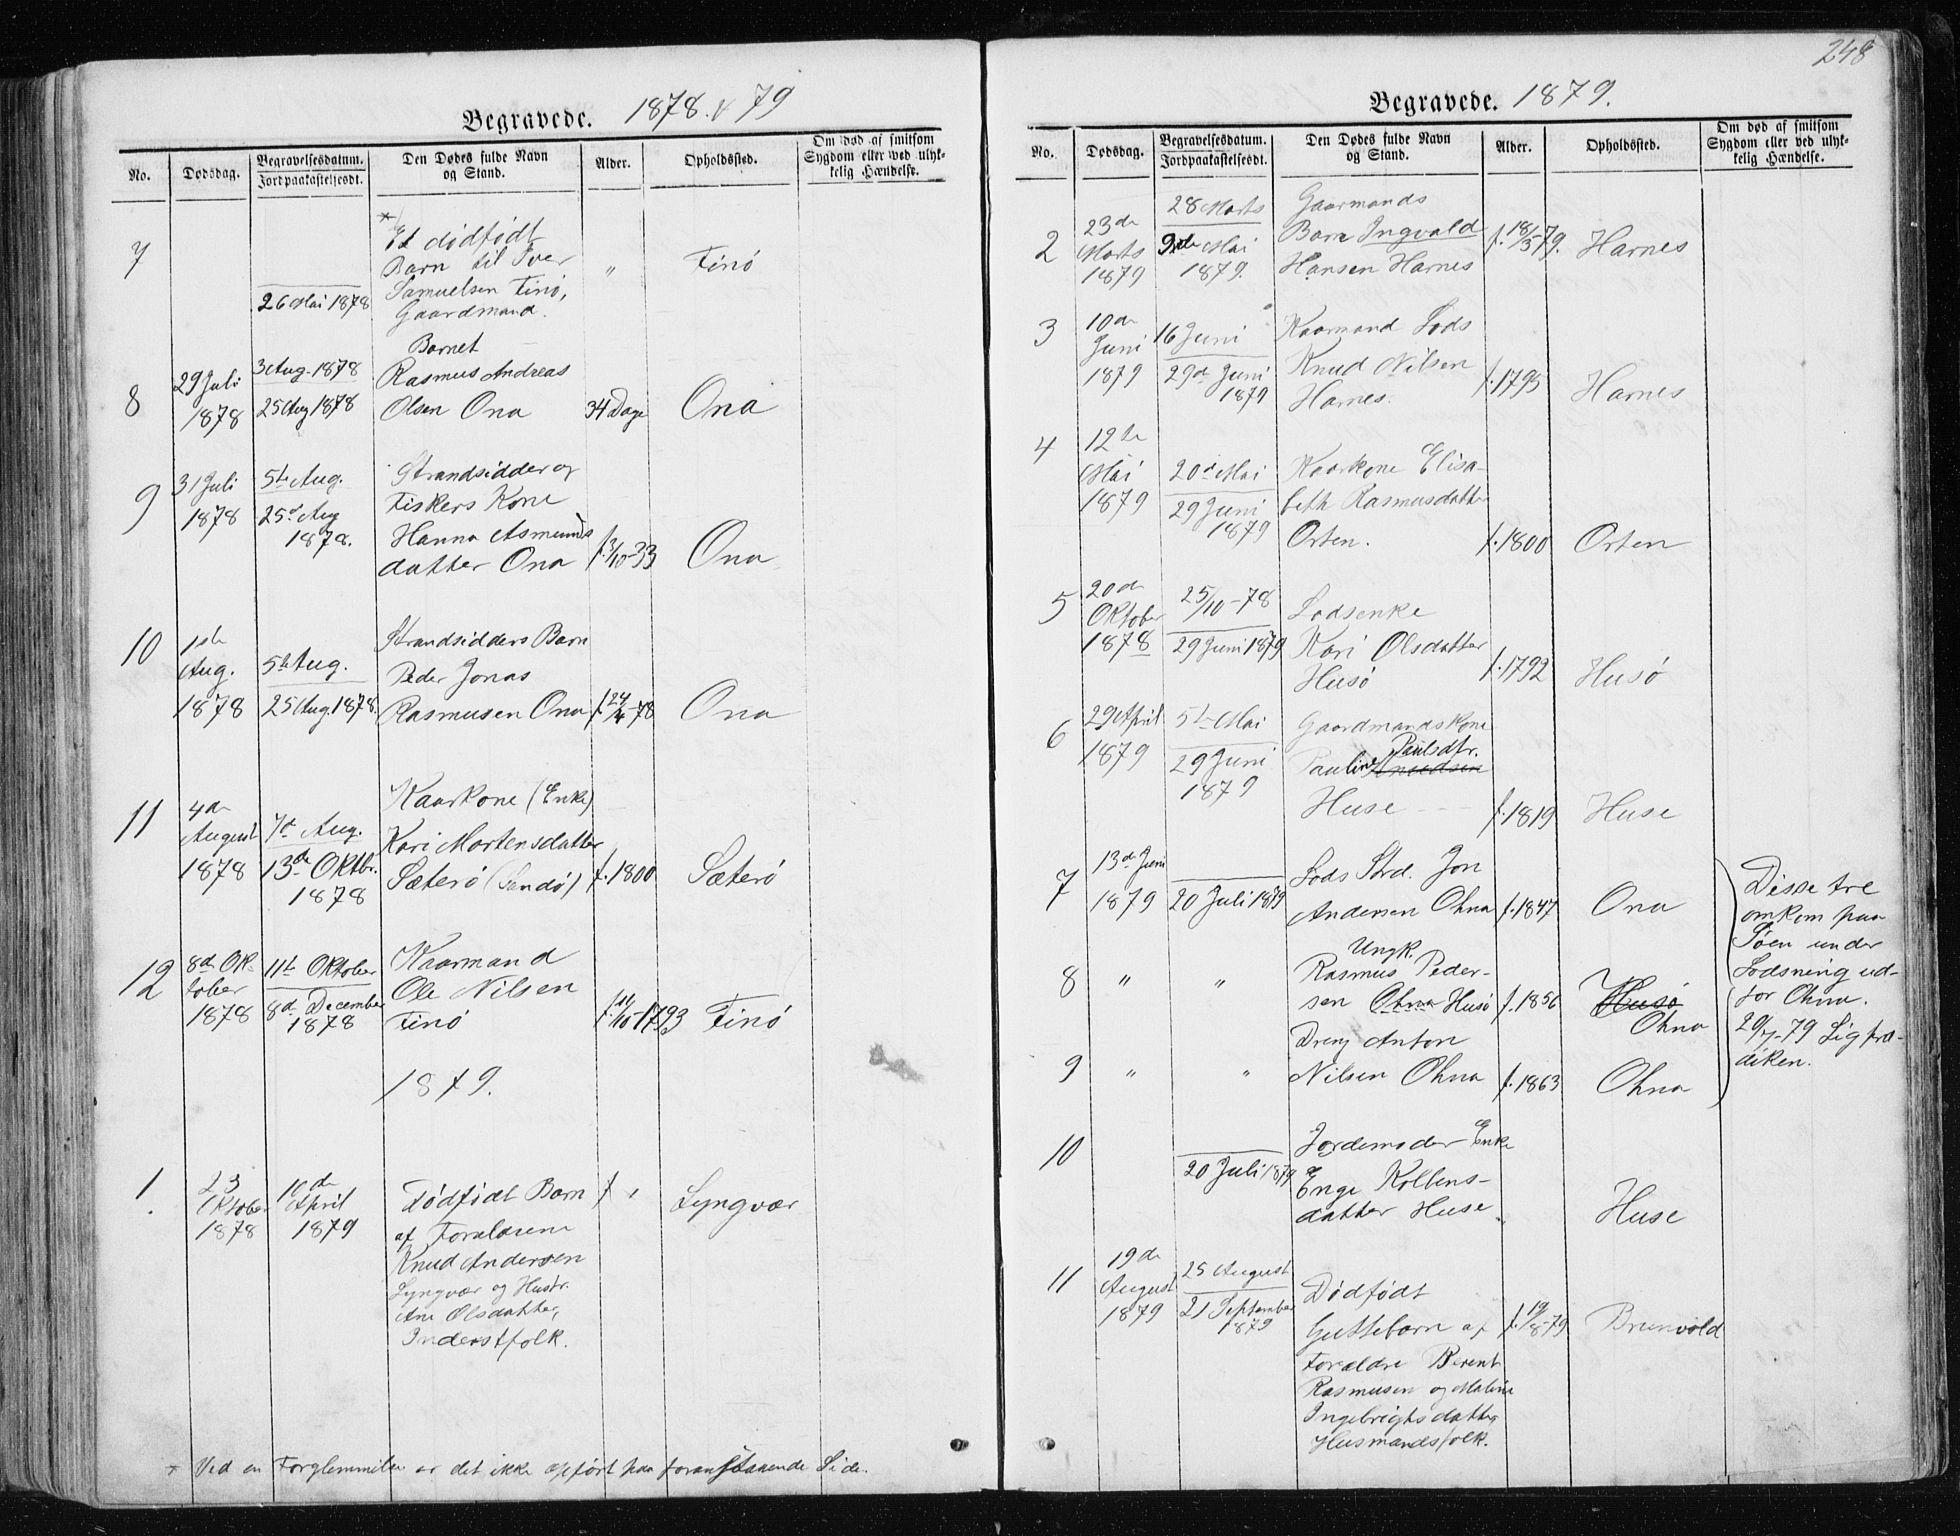 Begravede. 1878 & 79
No. Dødsdag. Begravelsesdatum. Jordpaakastelsesdt. Den Dødes fulde Navn og Stand. Alder. Opholdssted. Om død af smitsom Sygdom eller ved ulykkelig Hændelse.
7
26 Mai 1878
* Et dødfødt
Barn til Iver
Samuelsen Finø,
Gaardmand.
"
Finø
8
29 Juli
1878
3 Aug. 1878
25 Aug 1878
Barnet
Rasmus Andreas
Olsen Ona
34 Dage
Ona
9
31 Juli
1878
5te Aug.
25de Aug
1878.
Strandsidder og
Fiskers Kone
Hanna Asmunds
datter Ona
f. 3/10-33
Ona
10
1ste
Aug.
1878
5te Aug.
25 Aug. 1878.
Strandsidders Barn
Peder Jonas
Rasmusen Ona
f. 24/4-78
Ona
11
4de
August
1878
7de Aug.
13de Oktbr.
1878
Kaarkone (Enke)
Kari Mortensdatter
Sæterø (Sandø)
f. 1800
Sæterø
12
8de Ok-
tober
1878
11te Oktober
8de December
1878
Kaarmand
Ole Nilsen
Finø
1793
Finø
1879.
1.
23
Oktober
1878
10de
April
1879
Dødfødt Barn
af Forældrene
Knud Andersen
Lyngvær og Hustr.
Ane Olsdatter,
Inderstfolk.
f "
Lyngvær
* Ved en Forglemmelse er det ikke opført paa foranstaaende Side.
248
Begravede. 1879.
No. Dødsdag. Begravelsesdatum. Jordpaakastelsesdt. Den Dødes fulde Navn og Stand. Alder. Opholdssted. Om død af smitsom Sygdom eller ved ulykkelig Hændelse.
2
23de
Marts
1879
28 Marts
Mai
1879.
Gaarmands
Barn Ingvald
Hansen Harnes
f. 18/3-79.
Harnes
3
10de
Juni
1879
16 Juni
29de Juni
1879
Kaarmand Lods
Knud Nilsen
Harnes.
f. 1795
Harnes
4
12te
Mai
1879
20de Mai
29 Juni
1879
Kaarkone Elisa-
beth Rasmusdatter
Orten.
f. 1800
Orten
5
20de
Oktober
1878
25/10-78
29 Juni 1879
Lodsenke
Kari Olsdatter
Husø
f. 1792
Husø
6
29 April
1879
5te Mai
29 Juni
1879
Gaardmandskone
Pauline Knudsen Paulsdtr.
Huse
f. 1819
Huse
7
13de Juni
1879
20 Juli 1879
Lods Strd. Jon
Andersen Ohna
f. 1847
Ona
8
"
"
Ungk.
Rasmus Peder-
sen Ohna Husø
f. 1856
Husø
Ohna
9
"
"
Dreng Anton
Nilsen Ohna
f. 1863
Ohna
Disse tre
omkom paa
Søen under
Lodsning ud-
for Ohna.
20/7-79 Ligpræ-
diken.
10
20 Juli 1879
Jordemoder Enke
Enge Kolbens-
datter Huse
"
Huse
11
19de
August
1879
25 August
21 September
1879
Dødfødt
Guttebarn af
Forældre Berent
Rasmusen og Maline
Ingebrigtsdatter
Husmandsfolk.
f. 19/8-79
Brunvold